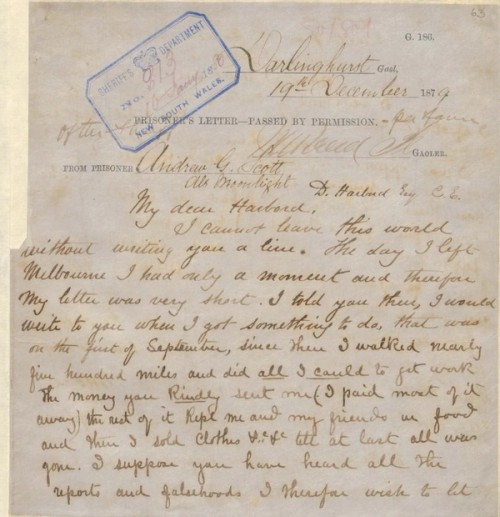 63
G. 186.
SHERIFF'S DEPARTMENT
NEW SOUTH WALES.
Darlinghurst Gaol,
19th December 1879
PRISONER'S LETTER—PASSED BY PERMISSION.
GAOLER.
FROM PRISONER Andrew G. Scott
Als Moonlight
D. Harbord Esq C.E.
My dear Harbord,
I cannot leave this world
without writing you a line. The day I left
Melbourne I had only a moment and therefore
my letter was very short. I told you then, I would
write to you when I got something to do, that was
on the first of September, since then I walked nearly
five hundred miles and did all I could to get work
The money you Kindly sent me (I paid most of it
away) the rest of it Kept me and my friends in food
and then I sold Clothes &c &c till at last all was
gone. I suppose you have heard all the
reports and falsehoods I therefore wish to let